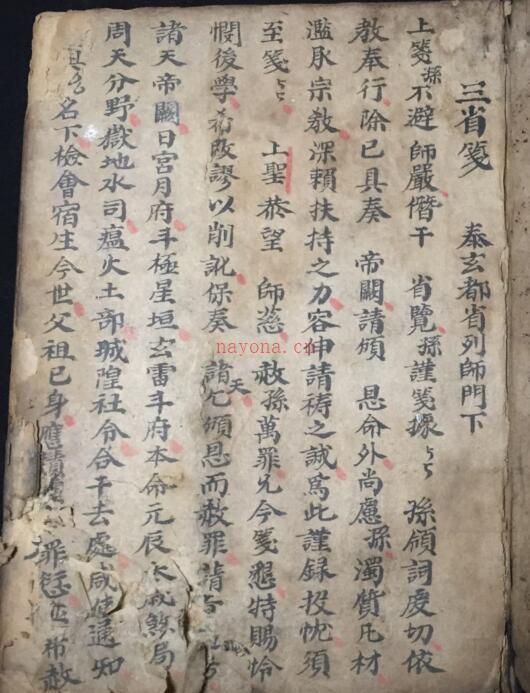 三省箋　泰玄都省列師門下
上箋孫不避師嚴僭干　省覽孫謹箋據　孫領詞虔切依
教奉行除已具奏　帝闕請頒　恩命外尚慮孫濁質凡材
濫叨宗教深賴扶持之力容伸請禱之誠爲此謹錄投忱須
至箋　上聖恭望　師慈赦孫萬罪允今箋懇特賜怜
憫後學　改謬以削訛保奏　諸天頒恩而赦罪請
諸天帝闕日宮月府斗極星垣玄雷斗府本命元辰太歲煞局
周天分野嶽地水司瘟火土部城隍社令合干去處咸使通知
名下檢會宿生今世父祖己身應　罪愆　赦
nayona.cn